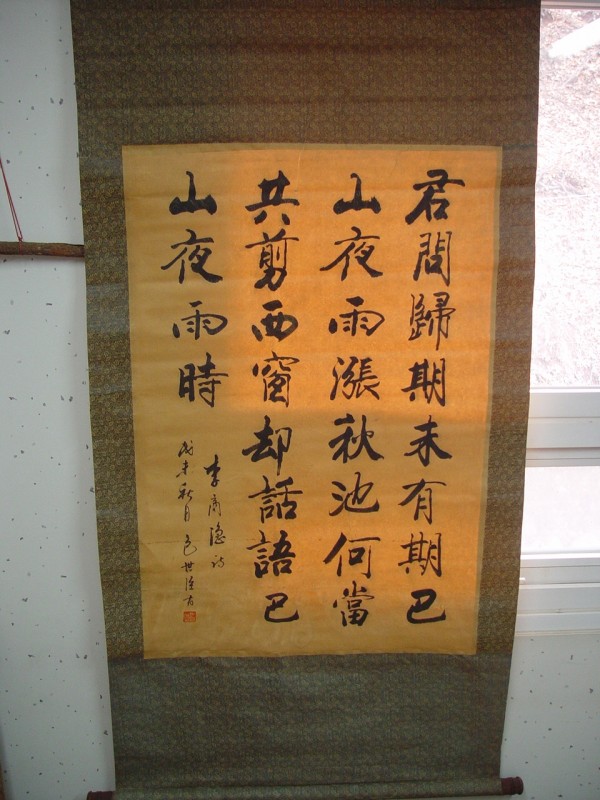 君問歸期未有期巴
山夜雨漲秋池何當
共剪西窗却話語巴
山夜雨時
李商隱詩
未秋月